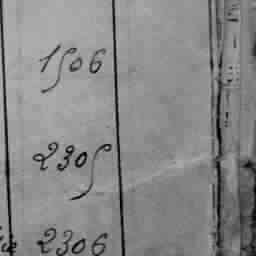 1506
2305
2306